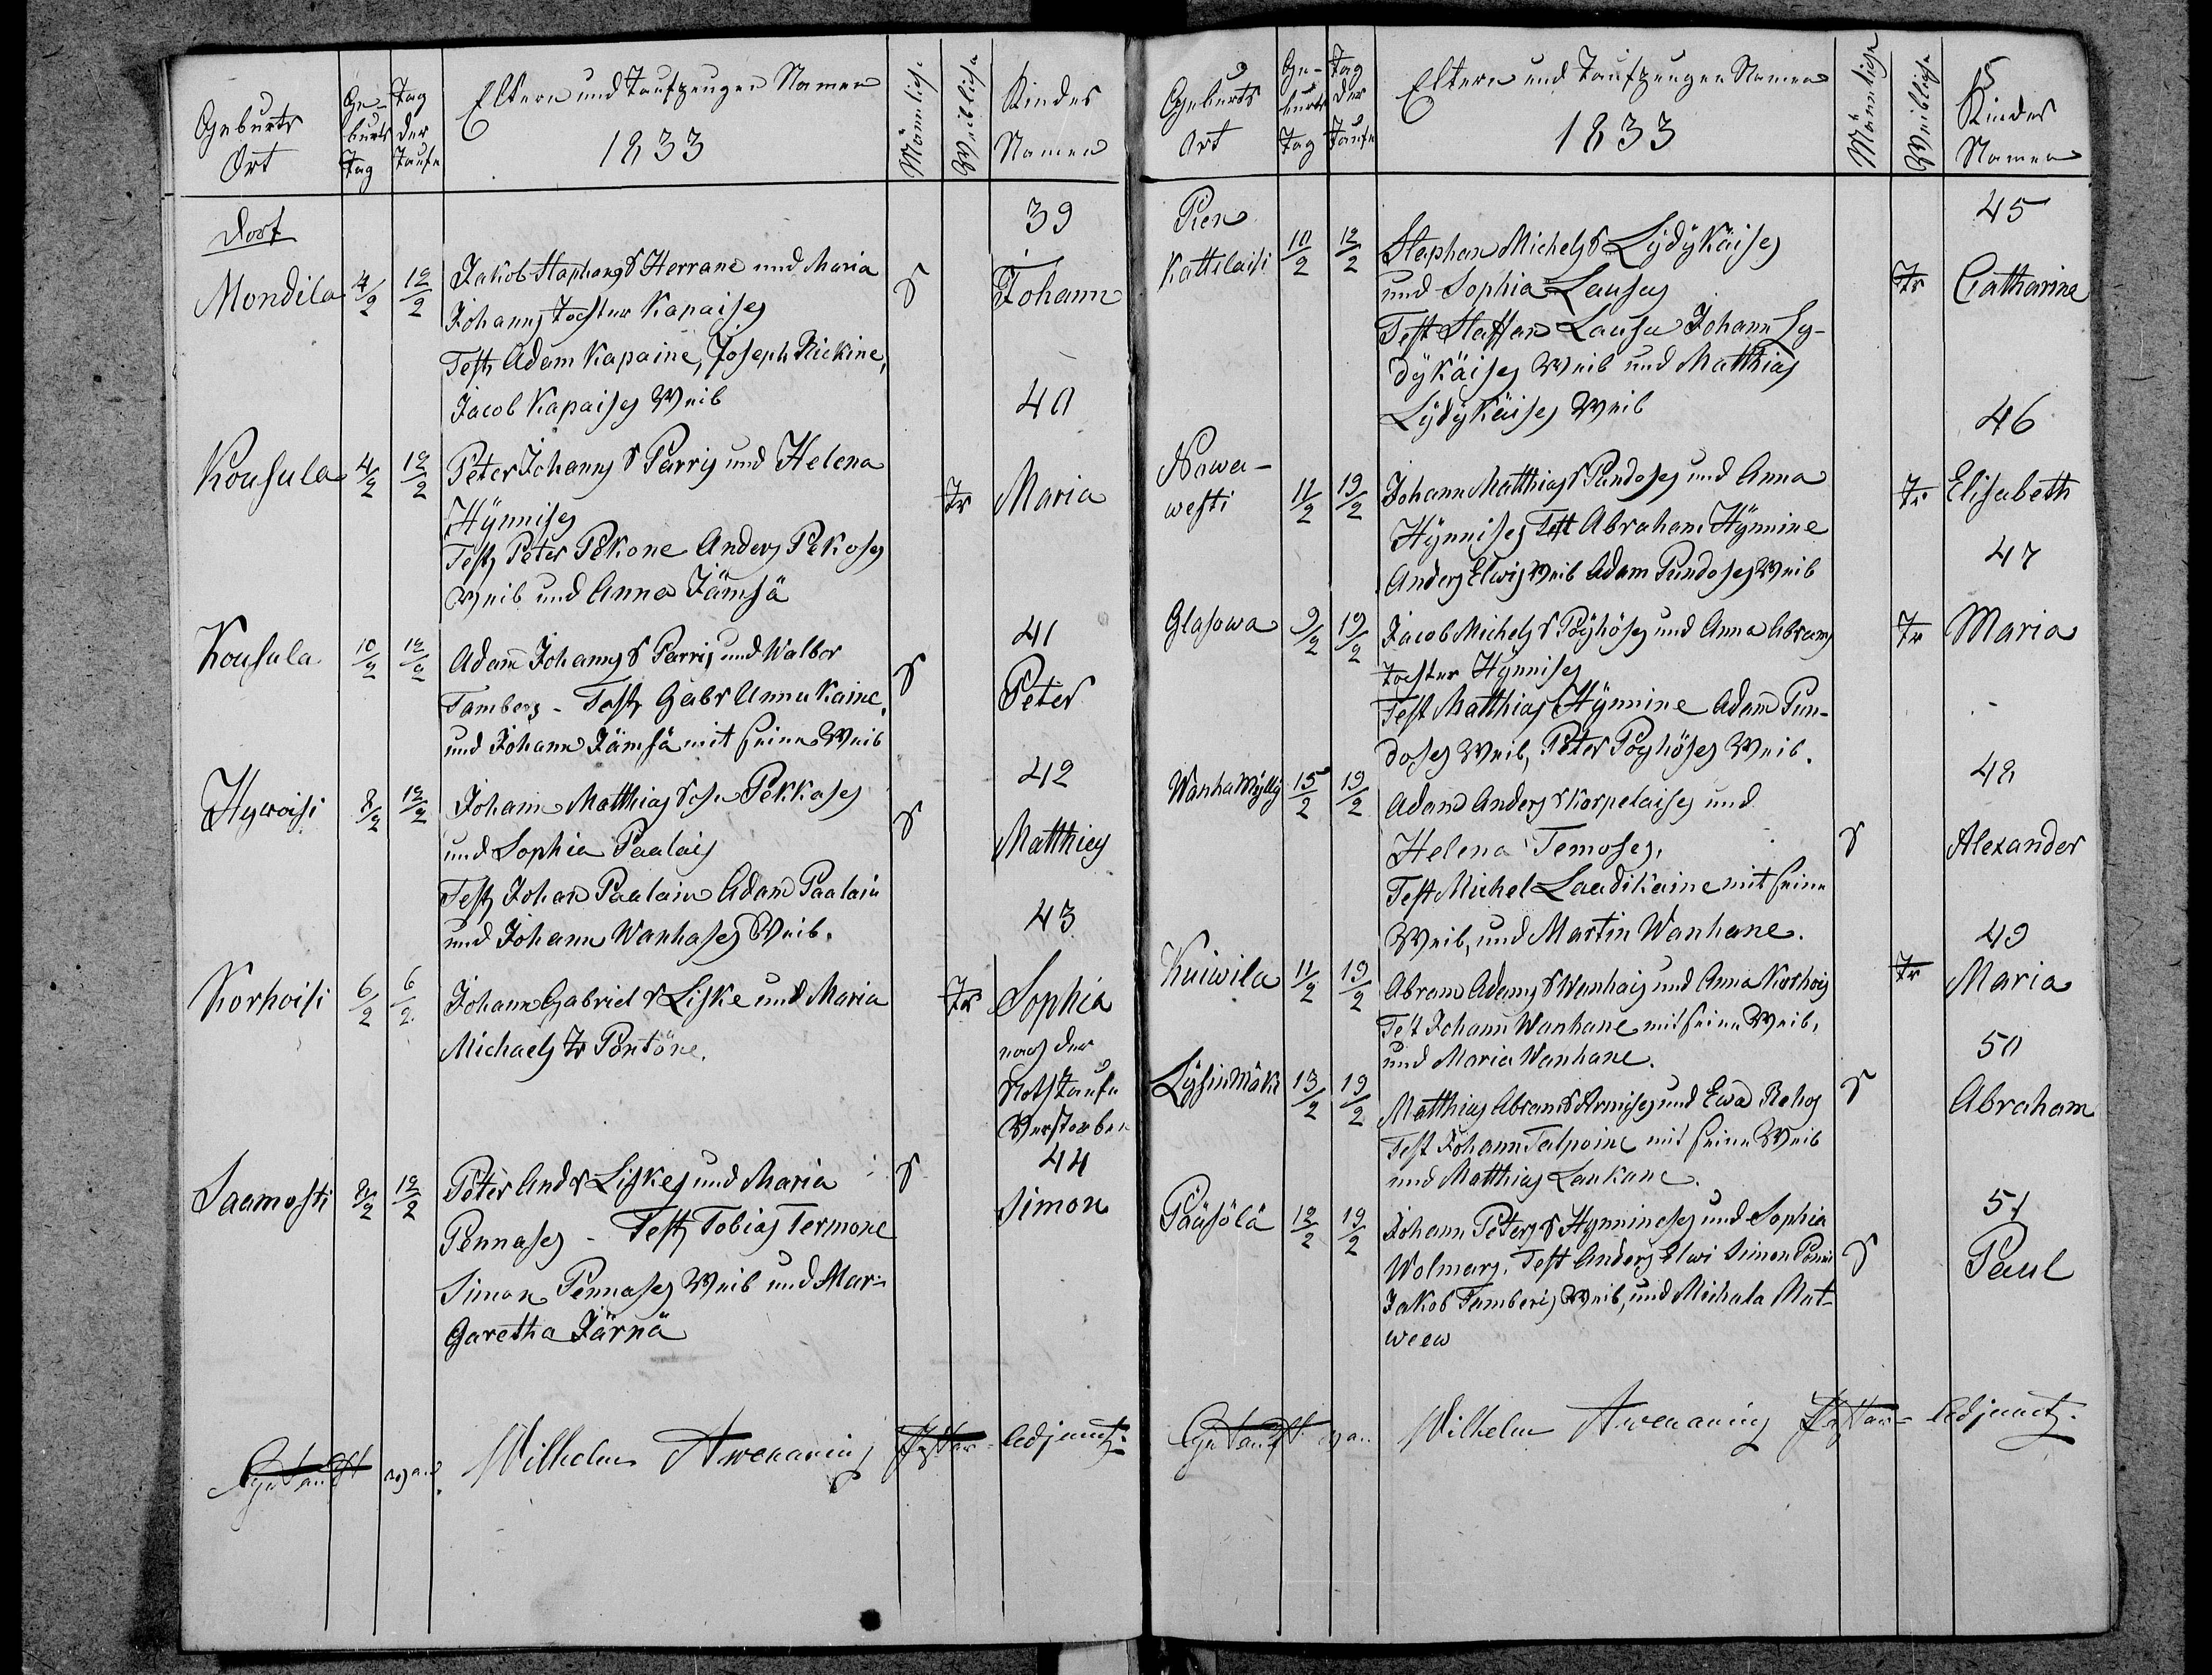 Geburts Ort
Geburts Tag
Tag der Taufe
Eltern und Taufzeugen Namen
1833
Männliche
Weibliche
Kindes Namen
Dorf
39
Mondila 4/2 12/2 Jakob Staphans S Herrane und Maria S Johann
Johanns Tochter Kapaises
Test Adam Kapaine, Joseph Rickine,
Jacob Kapaises Weib
40
Kousula 4/2 12/2 Peter Johanns S Parris und Helena Tr Maria
Hÿnnises
Test Peter Pekone Anders Pekoses
Weib und Anna Jämsä
41
Kousula 10/2 12/2 Adam Johanns S Parris und Walbor S Peter
Tamberg - Test Gabr Annukaine,
und Johann Jämsä mit seinem Weib
42
Hywoisi 8/2 12/2 Johann Matthias Sohn Pekkoses S Matthies
und Sophia Paalais
Test Johan Paalain Adam Paalain
und Johann Wanhases Weib.
43
Korhoisi 6/2 6/2 Johann Gabriel S Liske und Maria Tr Sophia
Michaels Tr Pontöne.
nach der
Nothtaufe
Verstorben
44
Saamosti 8/2 12/2 Peter And S Liskes und Maria S Simon
Pennases - Test Tobias Termone
Simon Pennases Weib und Mar-
garetha Järnä
Getauft von Wilhelm Awenarius Pastor-Adjunct.
Geburts Ort
Geburts Tag
Tag der Taufe
Eltern und Taufzeugen Namen
1833
Männliche
Weibliche
5
Kindes Namen
45
Pien
Kattilaisi 10/2 12/2 Stephan Michels S Lÿdÿkäises
und Sophia Lauses Tr Catharina
Test Staffan Lausu Johann Ly-
dÿkäises Weib und Matthias
Lÿdÿkäises Weib
46
Nowa-
westi 11/2 19/2 Johann Matthias S Pundoses und Anna Tr Elisabeth
Hÿnnises Test Abraham Hÿnnine
Anders Elwis Weib Adam Pundoses Weib
47
Glasowa 9/2 19/2 Jacob Michels S Pöÿhöses und Anna Abrams Tr Maria
Tochter Hÿnnises
Test Matthias Hÿnnine Adam Pun-
doses Weib, Peter Pöyhöses Weib.
48
Wanha Mÿllÿ 15/2 19/2 Adam Anders S Korpelaises und
Helena Temoses, S Alexander
Test Michel Laudikaine mit seinem
Weib, und Martin Wanhane.
49
Kuiwila 11/2 19/2 Abram Adams S Wanhais und Anna Korhois Tr Maria
Test Johann Wanhane mit seinem Weib,
und Maria Wanhane.
50
Lÿsinmäki 13/2 19/2 Matthias Abram S Armises und Ewa Rehos S Abraham
Test Johann Talpoine mit seinem Weib
und Matthias Lankane.
51
Päüsölä 12/2 19/2 Johann Peters S Hÿnnineses und Sophia
Wolmars. Test Anders Elwi Simon S Paul
Jakob Tamberis Weib, und Michala Mat-
weew
Getauft von Wilhelm Awenarius Pastor-Adjunct.